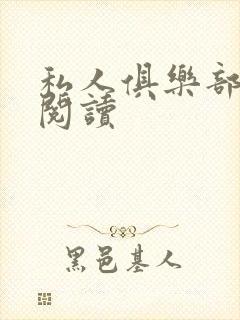 私人俱樂部
閱讀
黑邑基人